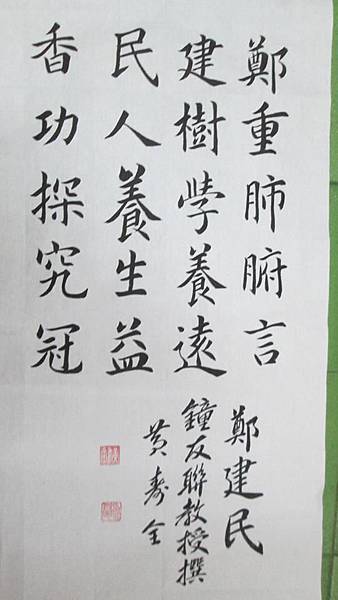 鄭重肺腑言
建樹學養遠
民人養生益
香功探究冠
鄭建民
鐘友聯教授撰
黃壽全